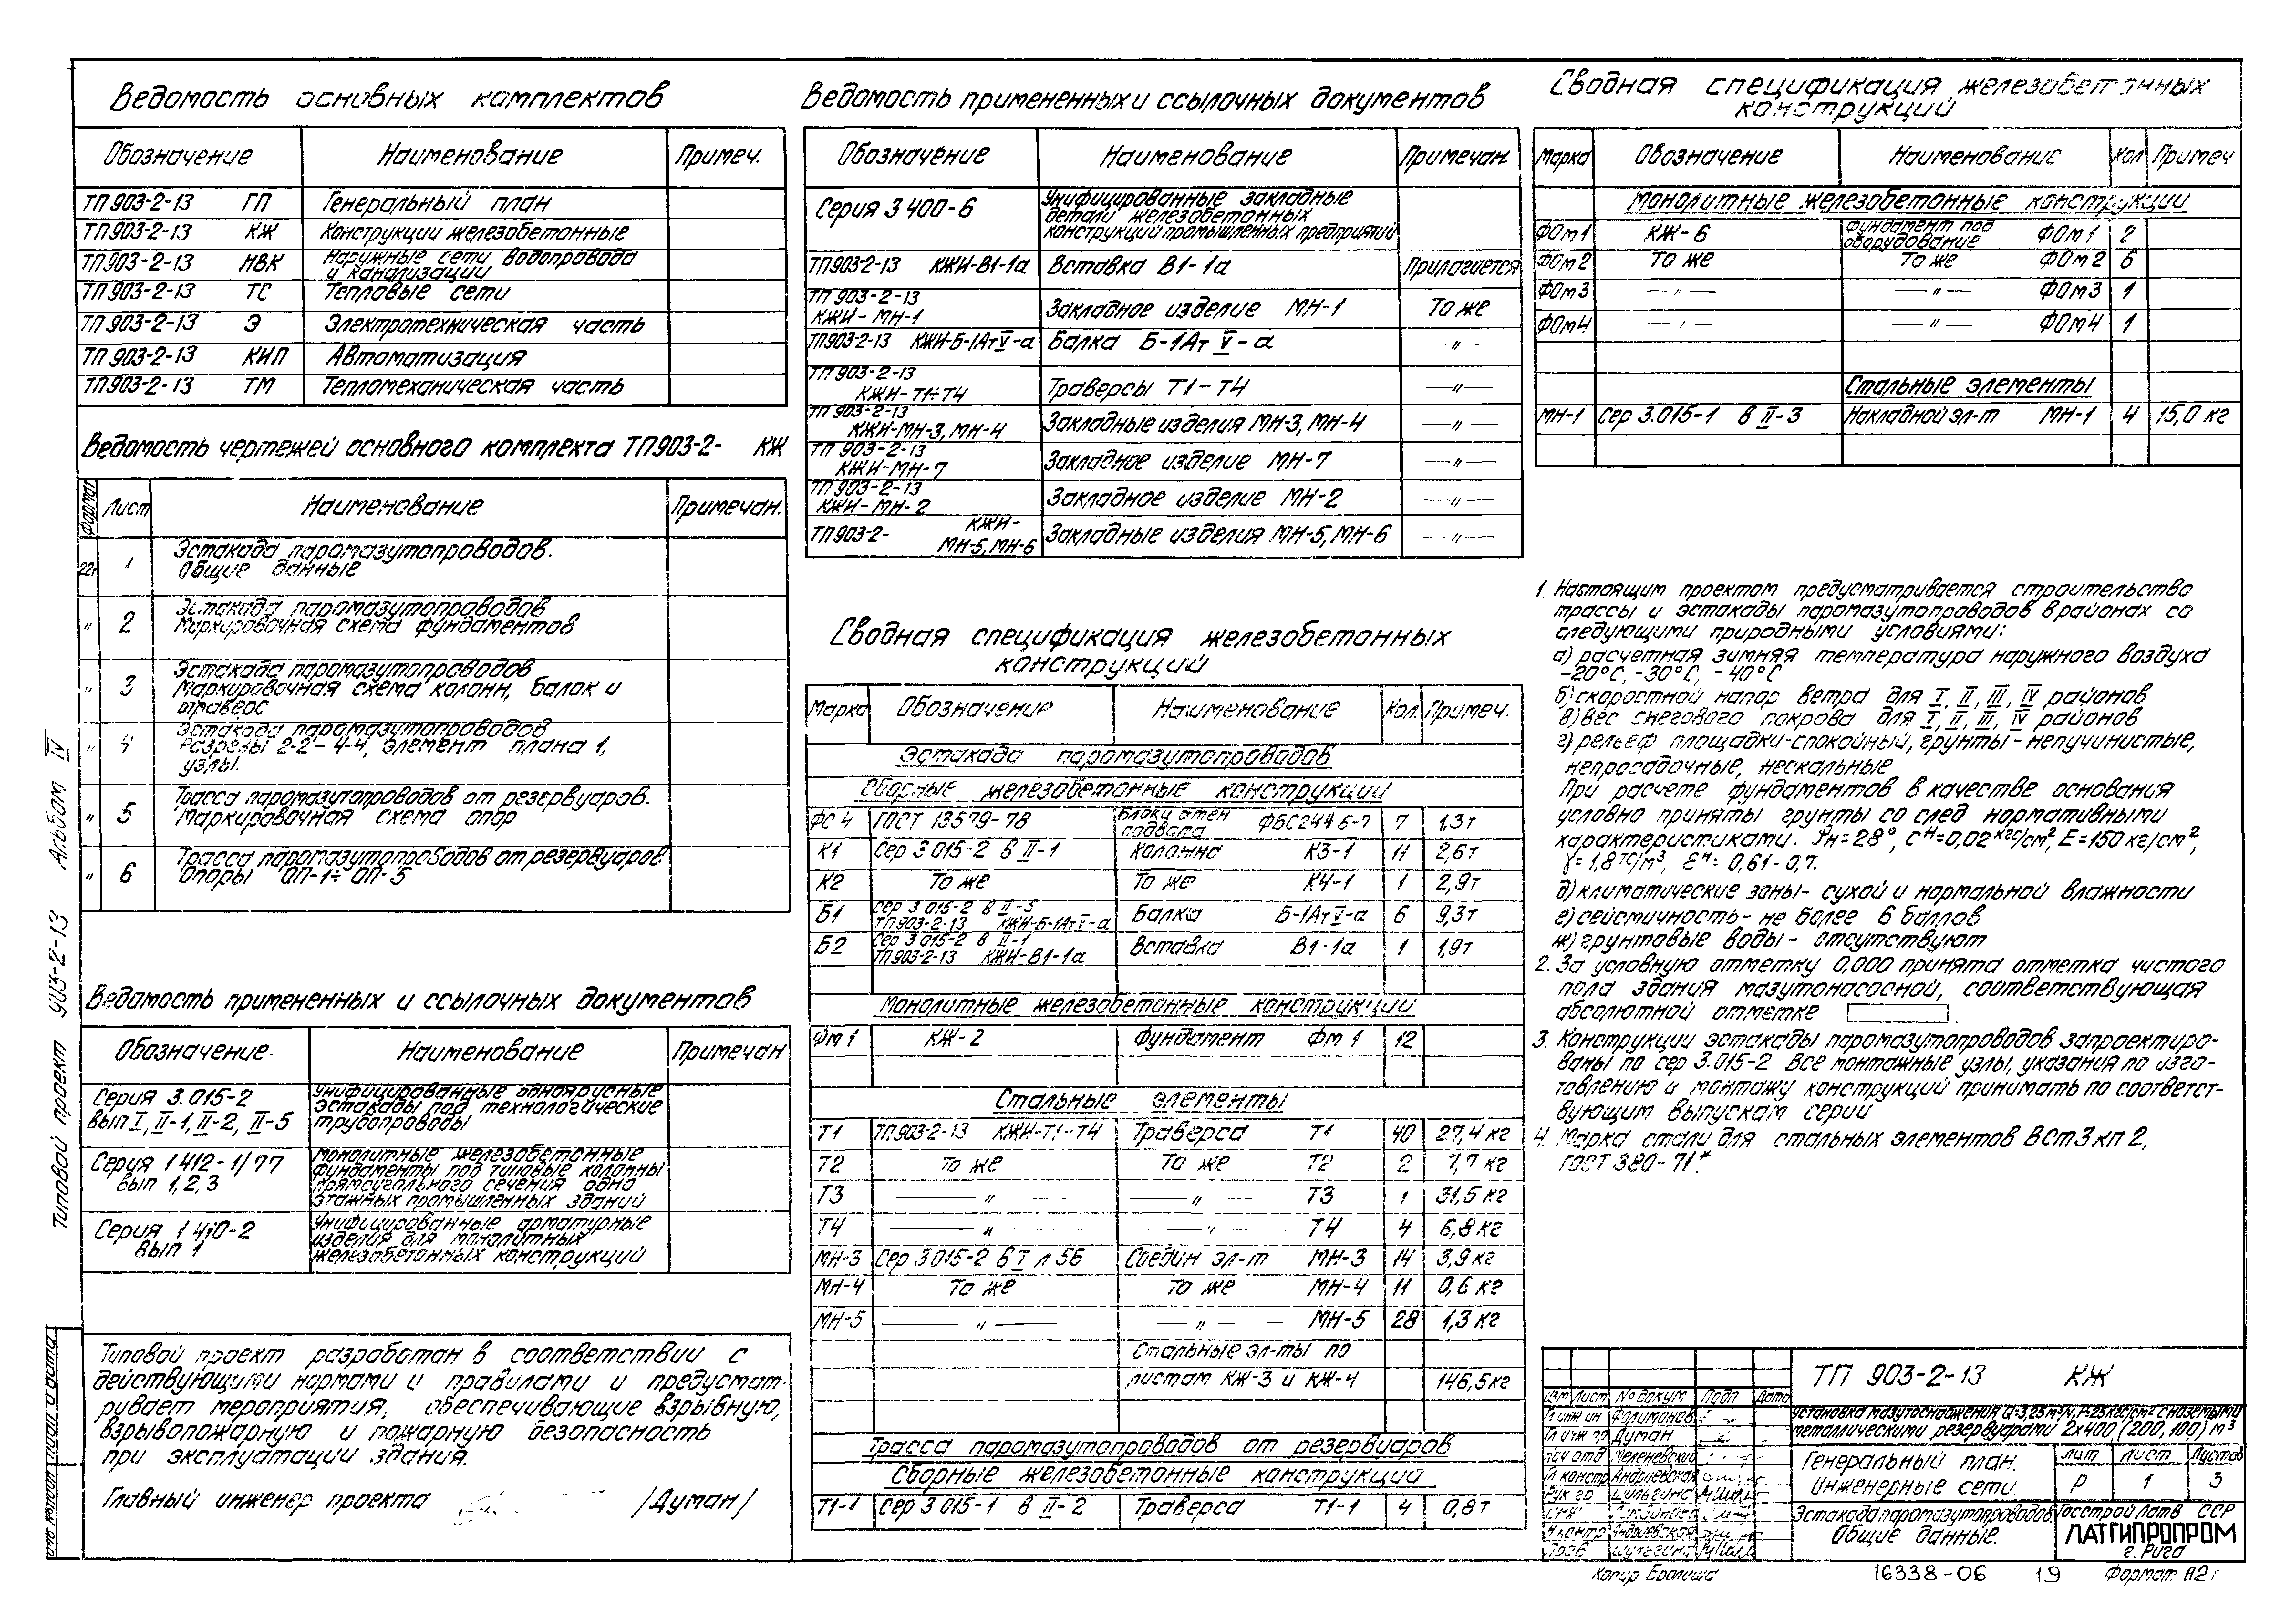 Ведомость основных комплектов
Обозначение Наименование Примеч.
ТП 903-2-13 ГП Генеральный план
ТП 903-2-13 КЖ Конструкции железобетонные
ТП 903-2-13 НВК Наружные сети водопровода
и канализации
ТП 903-2-13 ТС Тепловые сети
ТП 903-2-13 Э Электротехническая часть
ТП 903-2-13 КИП Автоматизация
ТП 903-2-13 ТМ Тепломеханическая часть
Ведомость чертежей основного комплекта ТП903-2- КЖ
Формат Лист Наименование Примечан.
22г 1 Эстакада паромазутопроводов.
Общие данные
" 2 Эстакада паромазутопроводов
Маркировочная схема фундаментов
" 3 Эстакада паромазутопроводов
Маркировочная схема колонн, балок и
траверс
" 4 Эстакада паромазутопроводов
Разрезы 2-2 – 4-4, элемент плана 1,
узлы.
" 5 Трасса паромазутопроводов от резервуаров.
Маркировочная схема опор
" 6 Трасса паромазутопроводов от резервуаров
Опоры ОП-1÷ОП-5
Ведомость примененных и ссылочных документов
Обозначение Наименование Примечан
Серия 3.015-2
вып I, II-1, II-2, II-5
Унифицированные одноярусные
эстакады под технологические
трубопроводы
Серия 1 412-1/77
вып 1,2,3
Монолитные железобетонные
фундаменты под типовые колонны
прямоугольного сечения одно
этажных промышленных зданий
Серия 1 410-2
вып 1
Унифицированные арматурные
изделия для монолитных
железобетонных конструкций
Типовой проект разработан в соответствии с
действующими нормами и правилами и предусмат-
ривает мероприятия, обеспечивающие взрывную,
взрывопожарную и пожарную безопасность
при эксплуатации здания.
Главный инженер проекта /Думан/
Ведомость примененных и ссылочных документов
Обозначение Наименование Примечан.
Серия 3 400-6
Унифицированные закладные
детали железобетонных
конструкций промышленных предприятий
ТП903-2-13 КЖИ-В1-1а Вставка В1-1а Прилагается
ТП 903-2-13
КЖИ-МН-1 Закладное изделие МН-1 То же
ТП903-2-13 КЖИ-Б-1АтV-а Балка Б-1Ат V-а —"—
ТП 903-2-13
КЖИ-Т1÷Т4 Траверсы Т1-Т4 —"—
ТП 903-2-13
КЖИ-МН-3, МН-4 Закладные изделия МН-3, МН-4 —"—
ТП 903-2-13
КЖИ-МН-7 Закладное изделие МН-7 —"—
ТП 903-2-13
КЖИ-МН-2 Закладное изделие МН-2 —"—
ТП903-2- КЖИ-
МН-5, МН-6 Закладные изделия МН-5, МН-6 —"—
Сводная спецификация железобетонных
конструкций
Марка Обозначение Наименование Кол. Примеч.
Эстакада паромазутопроводов
Сборные железобетонные конструкции
ФС 4 ГОСТ 13579-78 Блоки стен
подвала 7 1,3т
К1 Сер 3 015-2 в II-1 Колонна К3-1 11 2,6т
К2 То же То же К4-1 1 2,9т
Б1 Сер 3 015-2 в II-5
ТП903-2-13 КЖИ-Б-1АтV-а Балка Б-1АтV-а 6 9,3т
Б2 Сер 3 015-2 в II-1
ТП903-2-13 КЖИ-В1-1а Вставка В1-1а 1 1,9т
Монолитные железобетонные конструкции
Фм 1 КЖ-2 Фундамент Фм 1 12
Стальные элементы
Т1 ТП903-2-13 КЖИ-Т1-Т4 Траверса Т1 40 27,4 кг
Т2 То же То же Т2 2 7,7 кг
Т3 —"— —"— Т3 1 31,5 кг
Т4 —"— —"— Т4 4 6,8 кг
МН-3 Сер 3 015-2 в I л 56 Соедин эл-т МН-3 14 3,9 кг
МН-4 То же То же МН-4 11 0,6 кг
МН-5 —"— —"— МН-5 28 1,3 кг
Стальные эл-ты по
листам КЖ-3 и КЖ-4 146,5кг
Трасса паромазутопроводов от резервуаров
Сборные железобетонные конструкций
Т1-1 Сер 3 015-1 в II-2 Траверса Т1-1 4 0,8т
Сводная спецификация железобетонных
конструкций
Марка Обозначение Наименование Кол Примеч
Монолитные железобетонные конструкции
ФОм1 КЖ-6 Фундамент под
оборудование ФОм1 2
ФОм2 То же То же ФОм2 6
ФОм3 —"— —"— ФОм3 1
ФОм4 —"— —"— ФОм4 1
Стальные элементы
МН-1 Сер 3.015-1 в II-3 Накладной эл-т МН-1 4 15,0 кг
1. Настоящим проектом предусматривается строительство
трассы и эстакады паромазутопроводов в районах со
следующими природными условиями:
а) расчетная зимняя температура наружного воздуха
-20°С, -30°С, -40°С
б) скоростной напор ветра для I, II, III, IV районов
в) вес снегового покрова для I, II, III, IV районов
г) рельеф площадки-спокойный, грунты-непучинистые,
непросадочные, нескальные
При расчете фундаментов в качестве основания
условно приняты грунты со след нормативными
характеристиками. φн=28°, Сн=0,02 кгс/см², Е=150 кг/см²,
γ=1,8 тс/м³, εн=0,61-0,7.
д) климатические зоны- сухой и нормальной влажности
е) сейсмичность- не более 6 баллов
ж) грунтовые воды- отсутствуют
2. За условную отметку 0,000 принята отметка чистого
пола здания мазутонасосной, соответствующая
абсолютной отметке
3. Конструкции эстакады паромазутопроводов запроектиро-
ваны по сер 3.015-2 Все монтажные узлы, указания по изго-
товлению и монтажу конструкций принимать по соответст-
вующим выпускам серии
4. Марка стали для стальных элементов ВСт3кп2,
ГОСТ 380-71*
ТП 903-2-13 КЖ
Изм Лист № докум Подп Дата
Установка мазутоснабжения Q=3,25м³/ч, Р=25кгс/см² с наземными
металлическими резервуарами 2х400 (200, 100) м³
Генеральный план.
Инженерные сети.
Лит Лист Листов
Р 1 3
Эстакада паромазутопроводов
Общие данные.
Госстрой Латв ССР
ЛАТГИПРОПРОМ
г. Рига
Гл инж пр Думан
Гл констр Андриевская
Н контр Андриевская
Копир
16338-06 19 Формат А2г
Типовой проект 903-2-13 Альбом IV